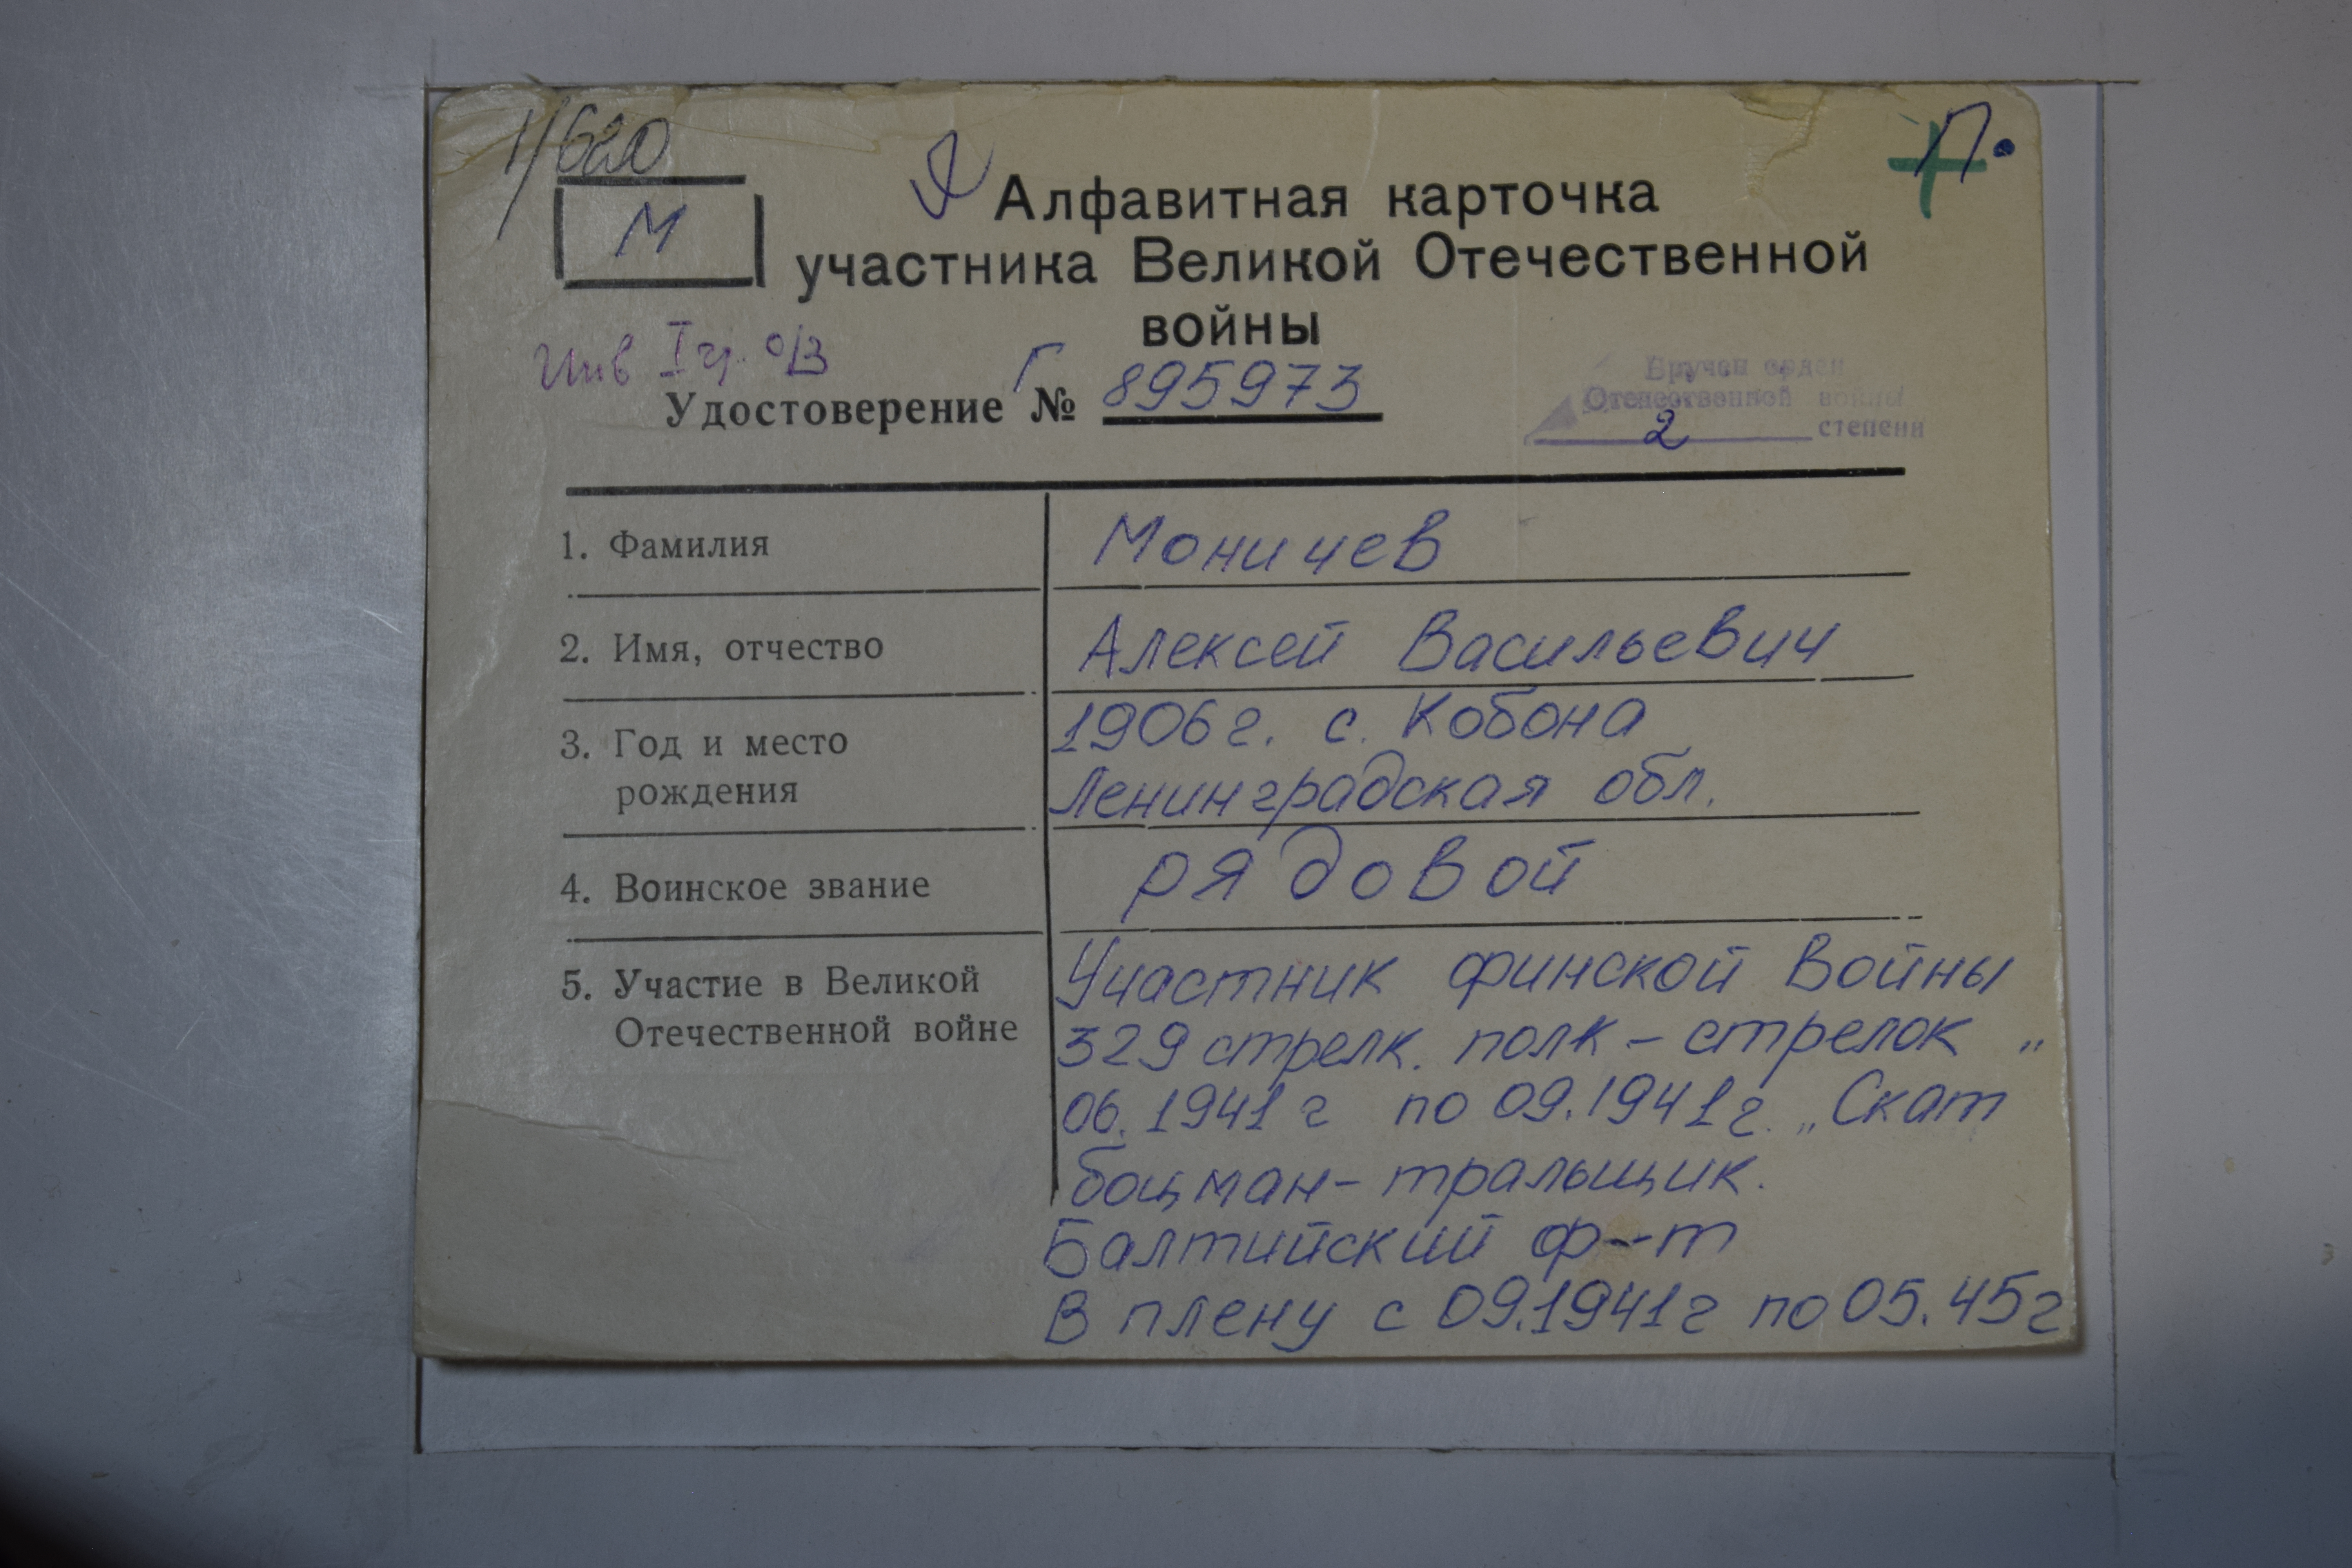 1/620
П.
М
Алфавитная карточка
участника Великой Отечественной
войны
Инв I гр. о/з
Удостоверение Г № 895973
Вручен орден
Отечественной войны
2 степени
1. Фамилия
Моничев
2. Имя, отчество
Алексей Васильевич
3. Год и место
рождения
1906г. с. Кобона
Ленинградская обл.
4. Воинское звание
рядовой
5. Участие в Великой
Отечественной войне
Участник финской войны
329 стрелк. полк – стрелок „
06.1941г по 09.1941г. „Скат
боцман-тральщик.
Балтийский ф-т
В плену с 09.1941г по 05.45г